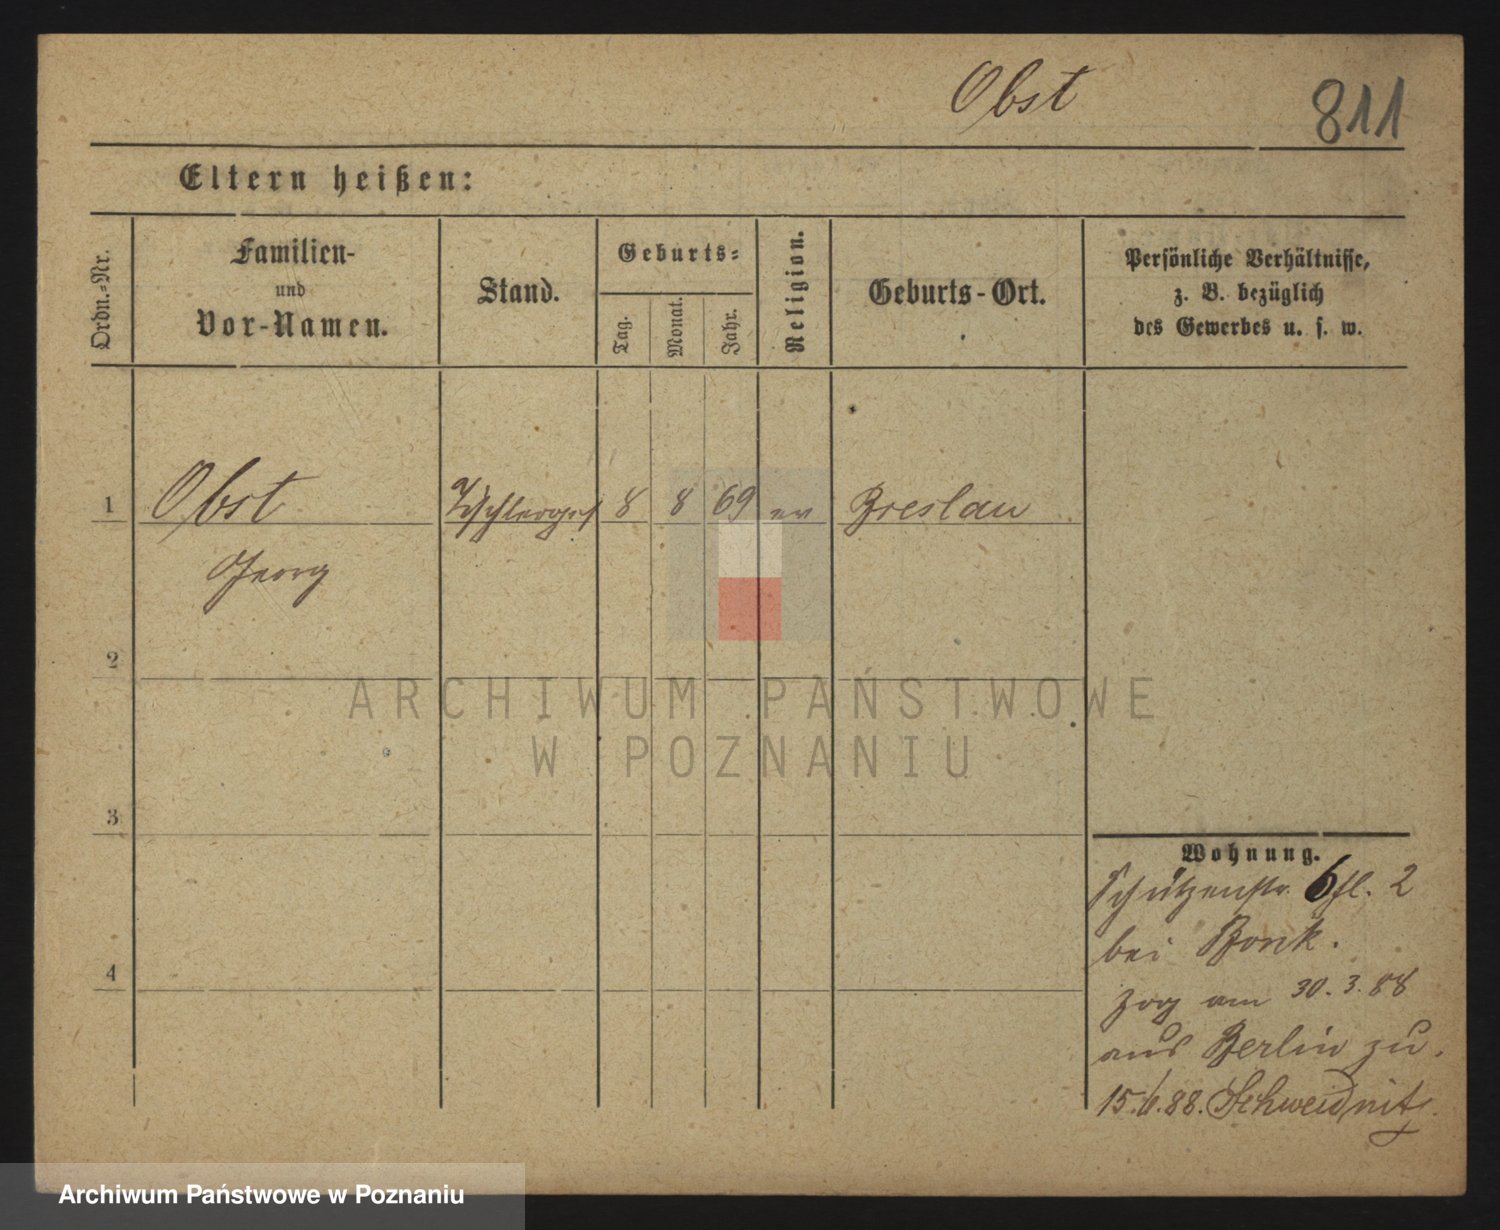 Obst 811
Eltern heißen:
Ordn.-Nr.
Familien-
und
Vor-Namen.
Stand.
Geburts-
Tag.
Monat.
Jahr.
Religion.
Geburts-Ort.
Persönliche Verhältnisse,
z. B. bezüglich
des Gewerbes u. s. w.
1 Obst Tischlerges 8 8 69 ev Breslau
Georg
2
3
4
Wohnung.
Schützenstr. 6 fl. 2
bei Bonk.
zog am 30.3.88
aus Berlin zu.
15.6.88. Schweidnitz.
ARCHIWUM PAŃSTWOWE
W POZNANIU
Archiwum Państwowe w Poznaniu